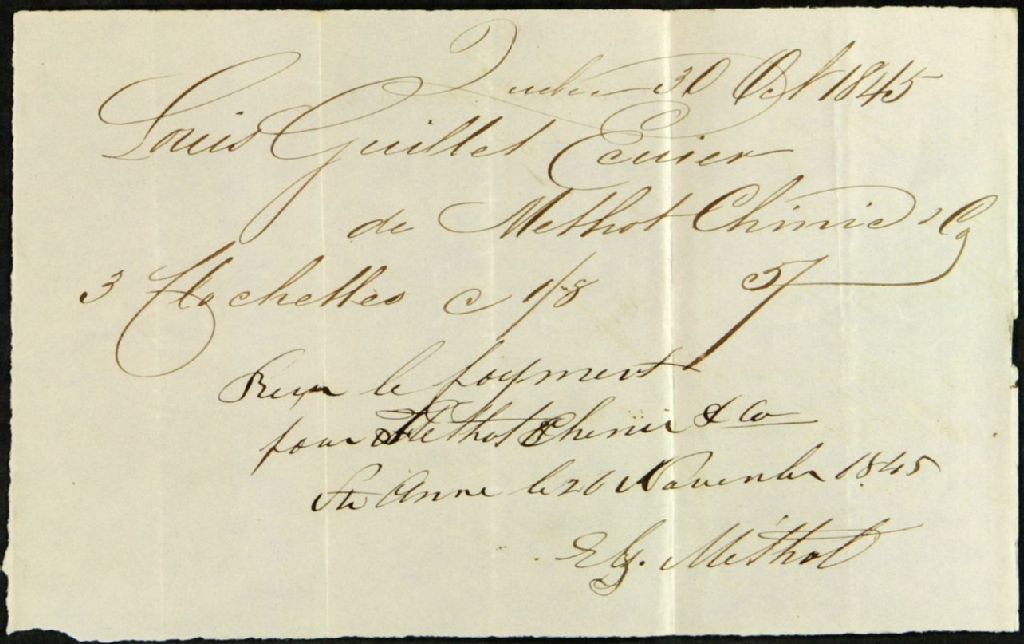 Quebec 30 Oct 1845
Louis Guillet Ecuier
de Methot Chinic & Co
3 Hachettes @ 1/8 5/
Reçu le payment
pour Methot Chinic & Co
Ste Anne le 26 Novembre 1845
Methot